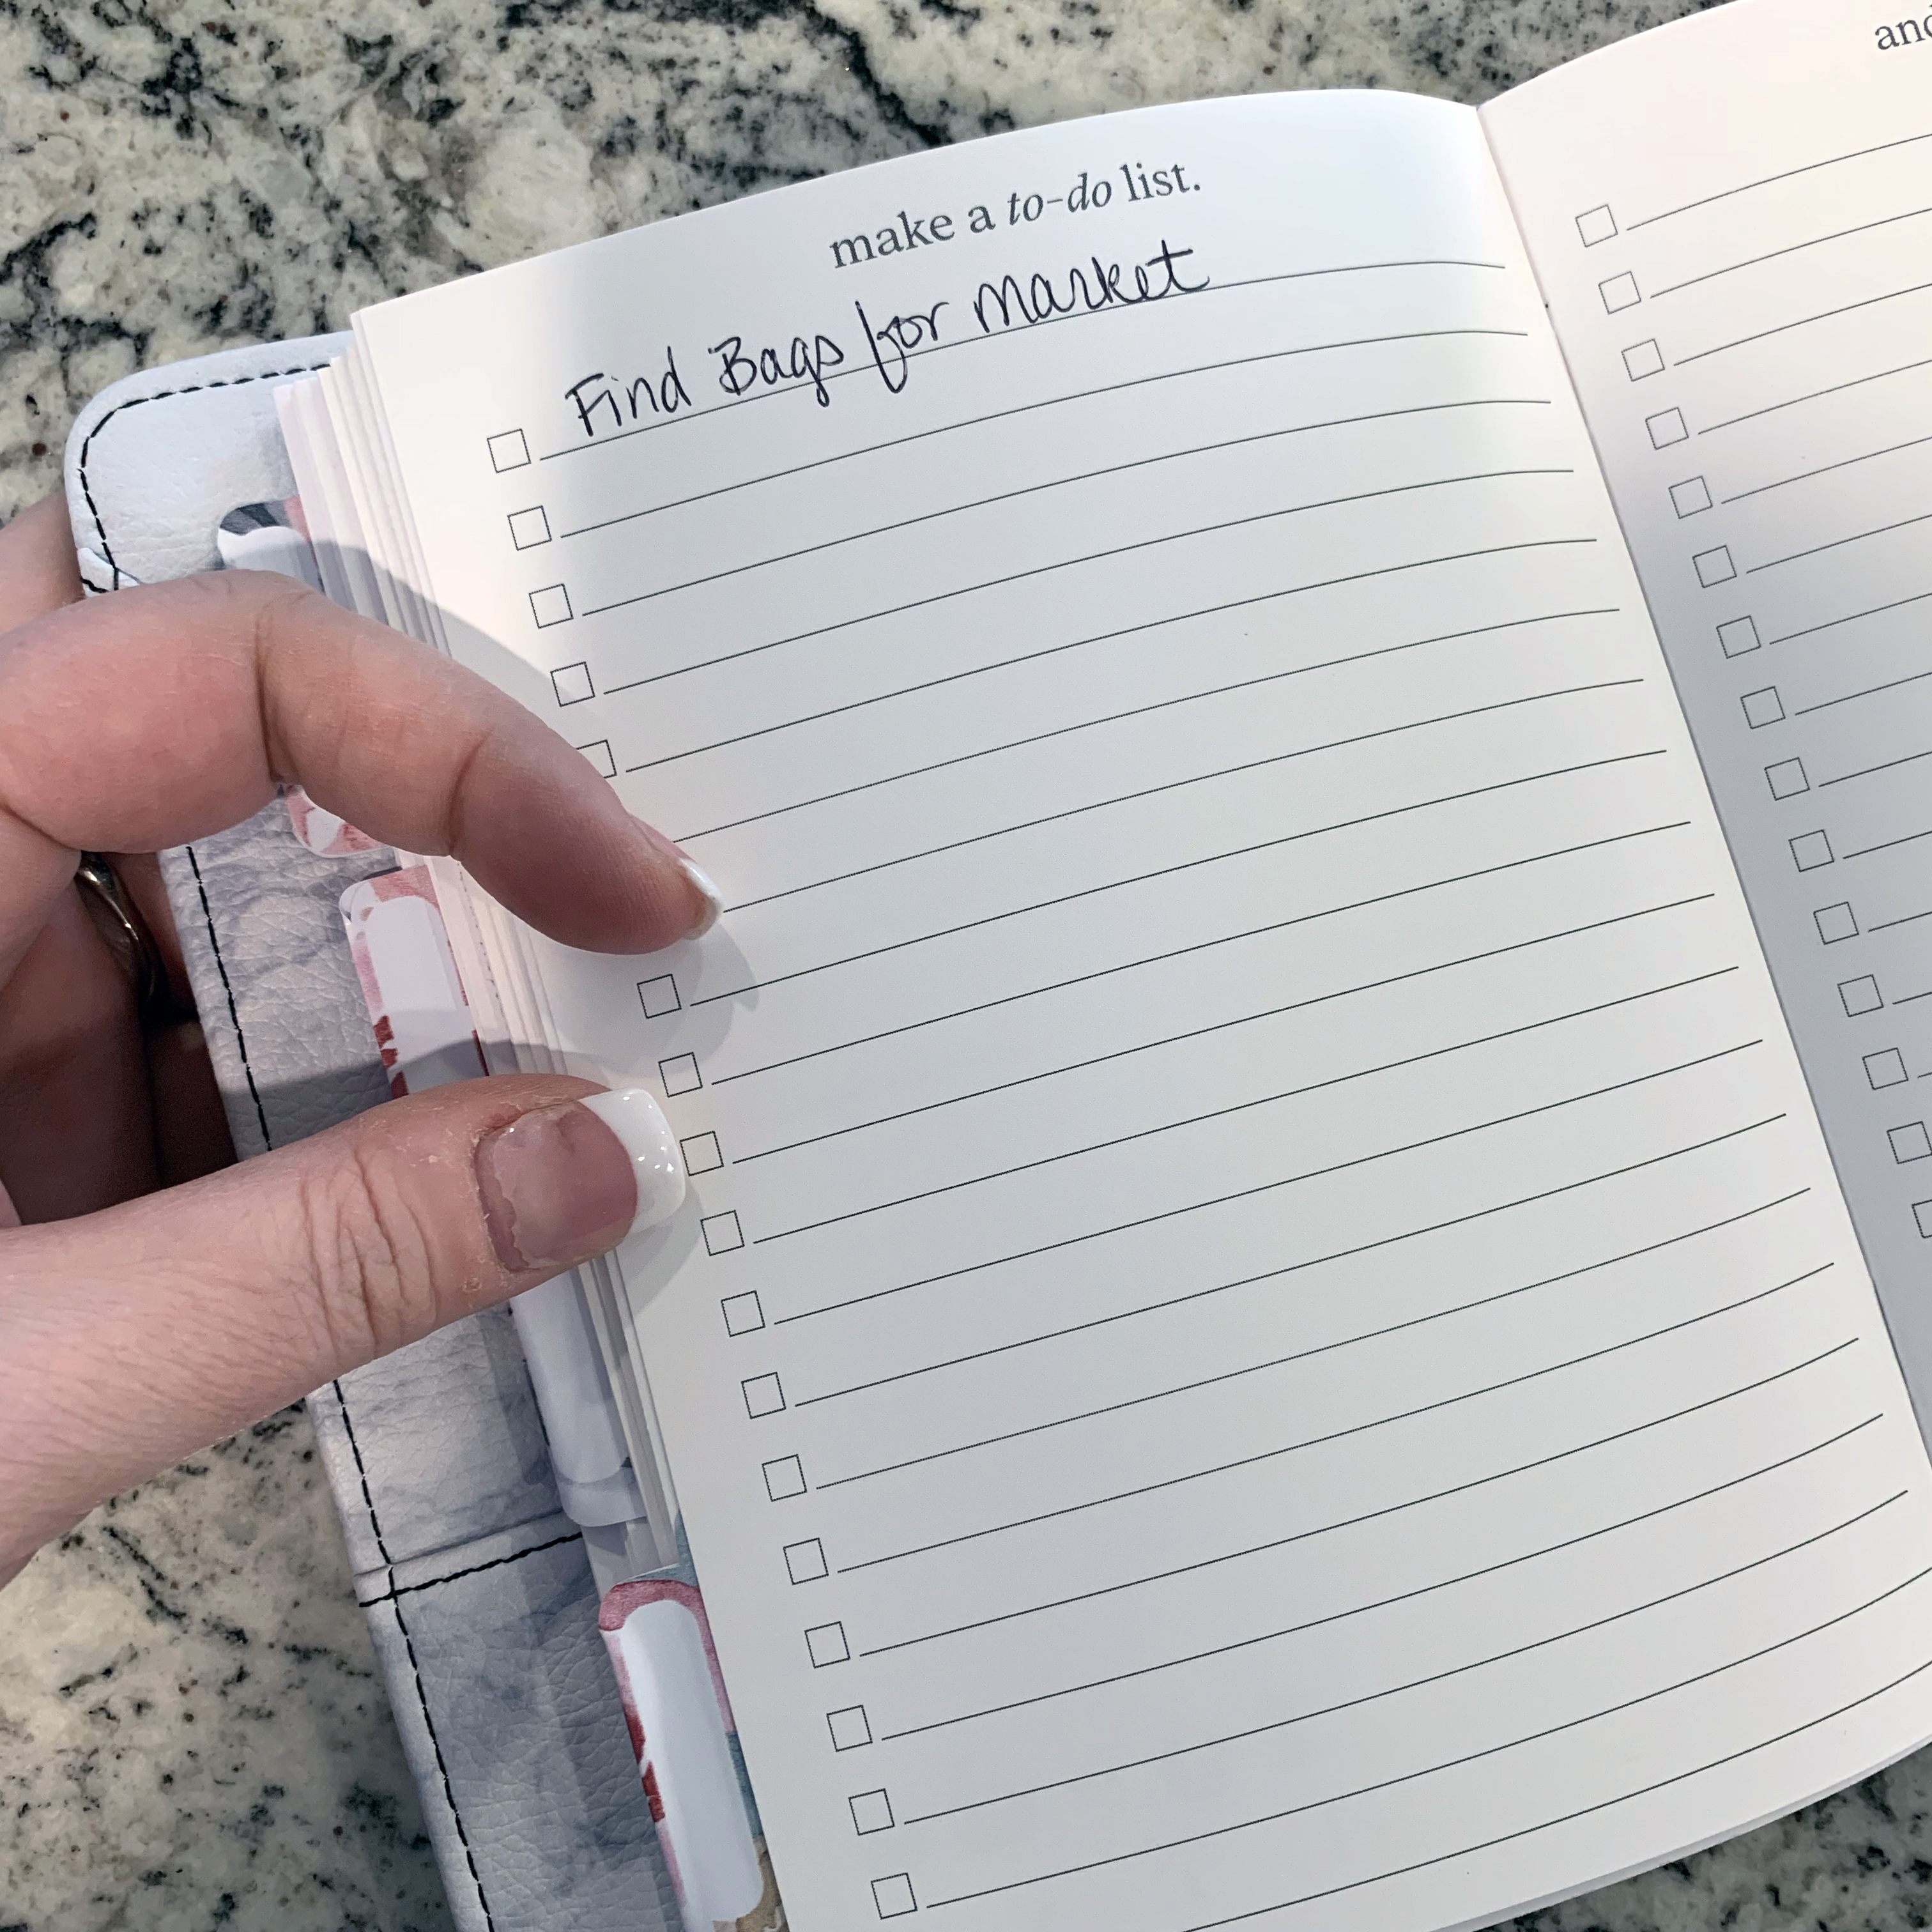 make a to-do list.
Find Bags for Market